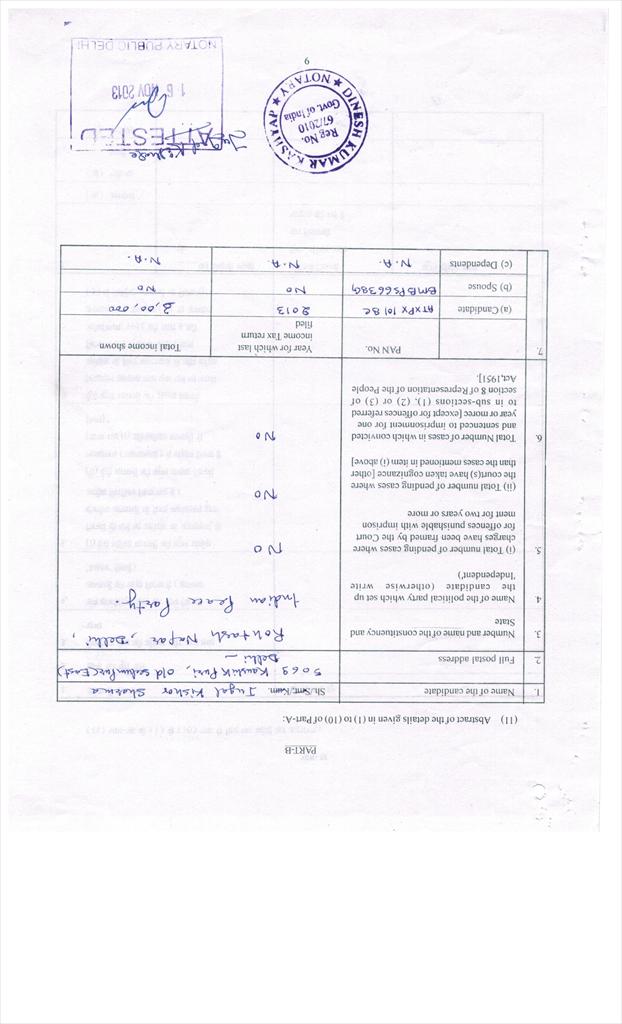 PART-B
(11) Abstract of the details given in (1) to (10) of Part-A:
1. Name of the candidate Sh./Smt./Kum. Jugal Kishor Sharma
2. Full postal address 5069 Kaushik Puri, Old Seelampur (East) Delhi —
3. Number and name of the constituency and State Rohtash Nagar, Delhi,
4. Name of the political party which set up
the candidate (otherwise write
'Independent') Indian Peace Party.
5. (i) Total number of pending cases where
charges have been framed by the Court
for offences punishable with imprison
ment for two years or more NO
(ii) Total number of pending cases where
the court(s) have taken cognizance [other
than the cases mentioned in item (i) above] No
6. Total Number of cases in which convicted
and sentenced to imprisonment for one
year or morec [except for offences referred
to in sub-sections (1), (2) or (3) of
section 8 of Representation of the People
Act,1951]. No
7. PAN No. Year for which last
income Tax return
filed Total income shown
(a) Candidate 2013 2,00,000
(b) Spouse No No
(c) Dependents N.A. N.A. N.A.
DINESH KUMAR KASHYAP ★ NOTARY ★
Reg No.
67/2010
Govt. of India
ATTESTED
16 NOV 2013
NOTARY PUBLIC DELHI
9